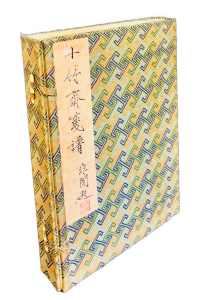 十竹齋箋譜